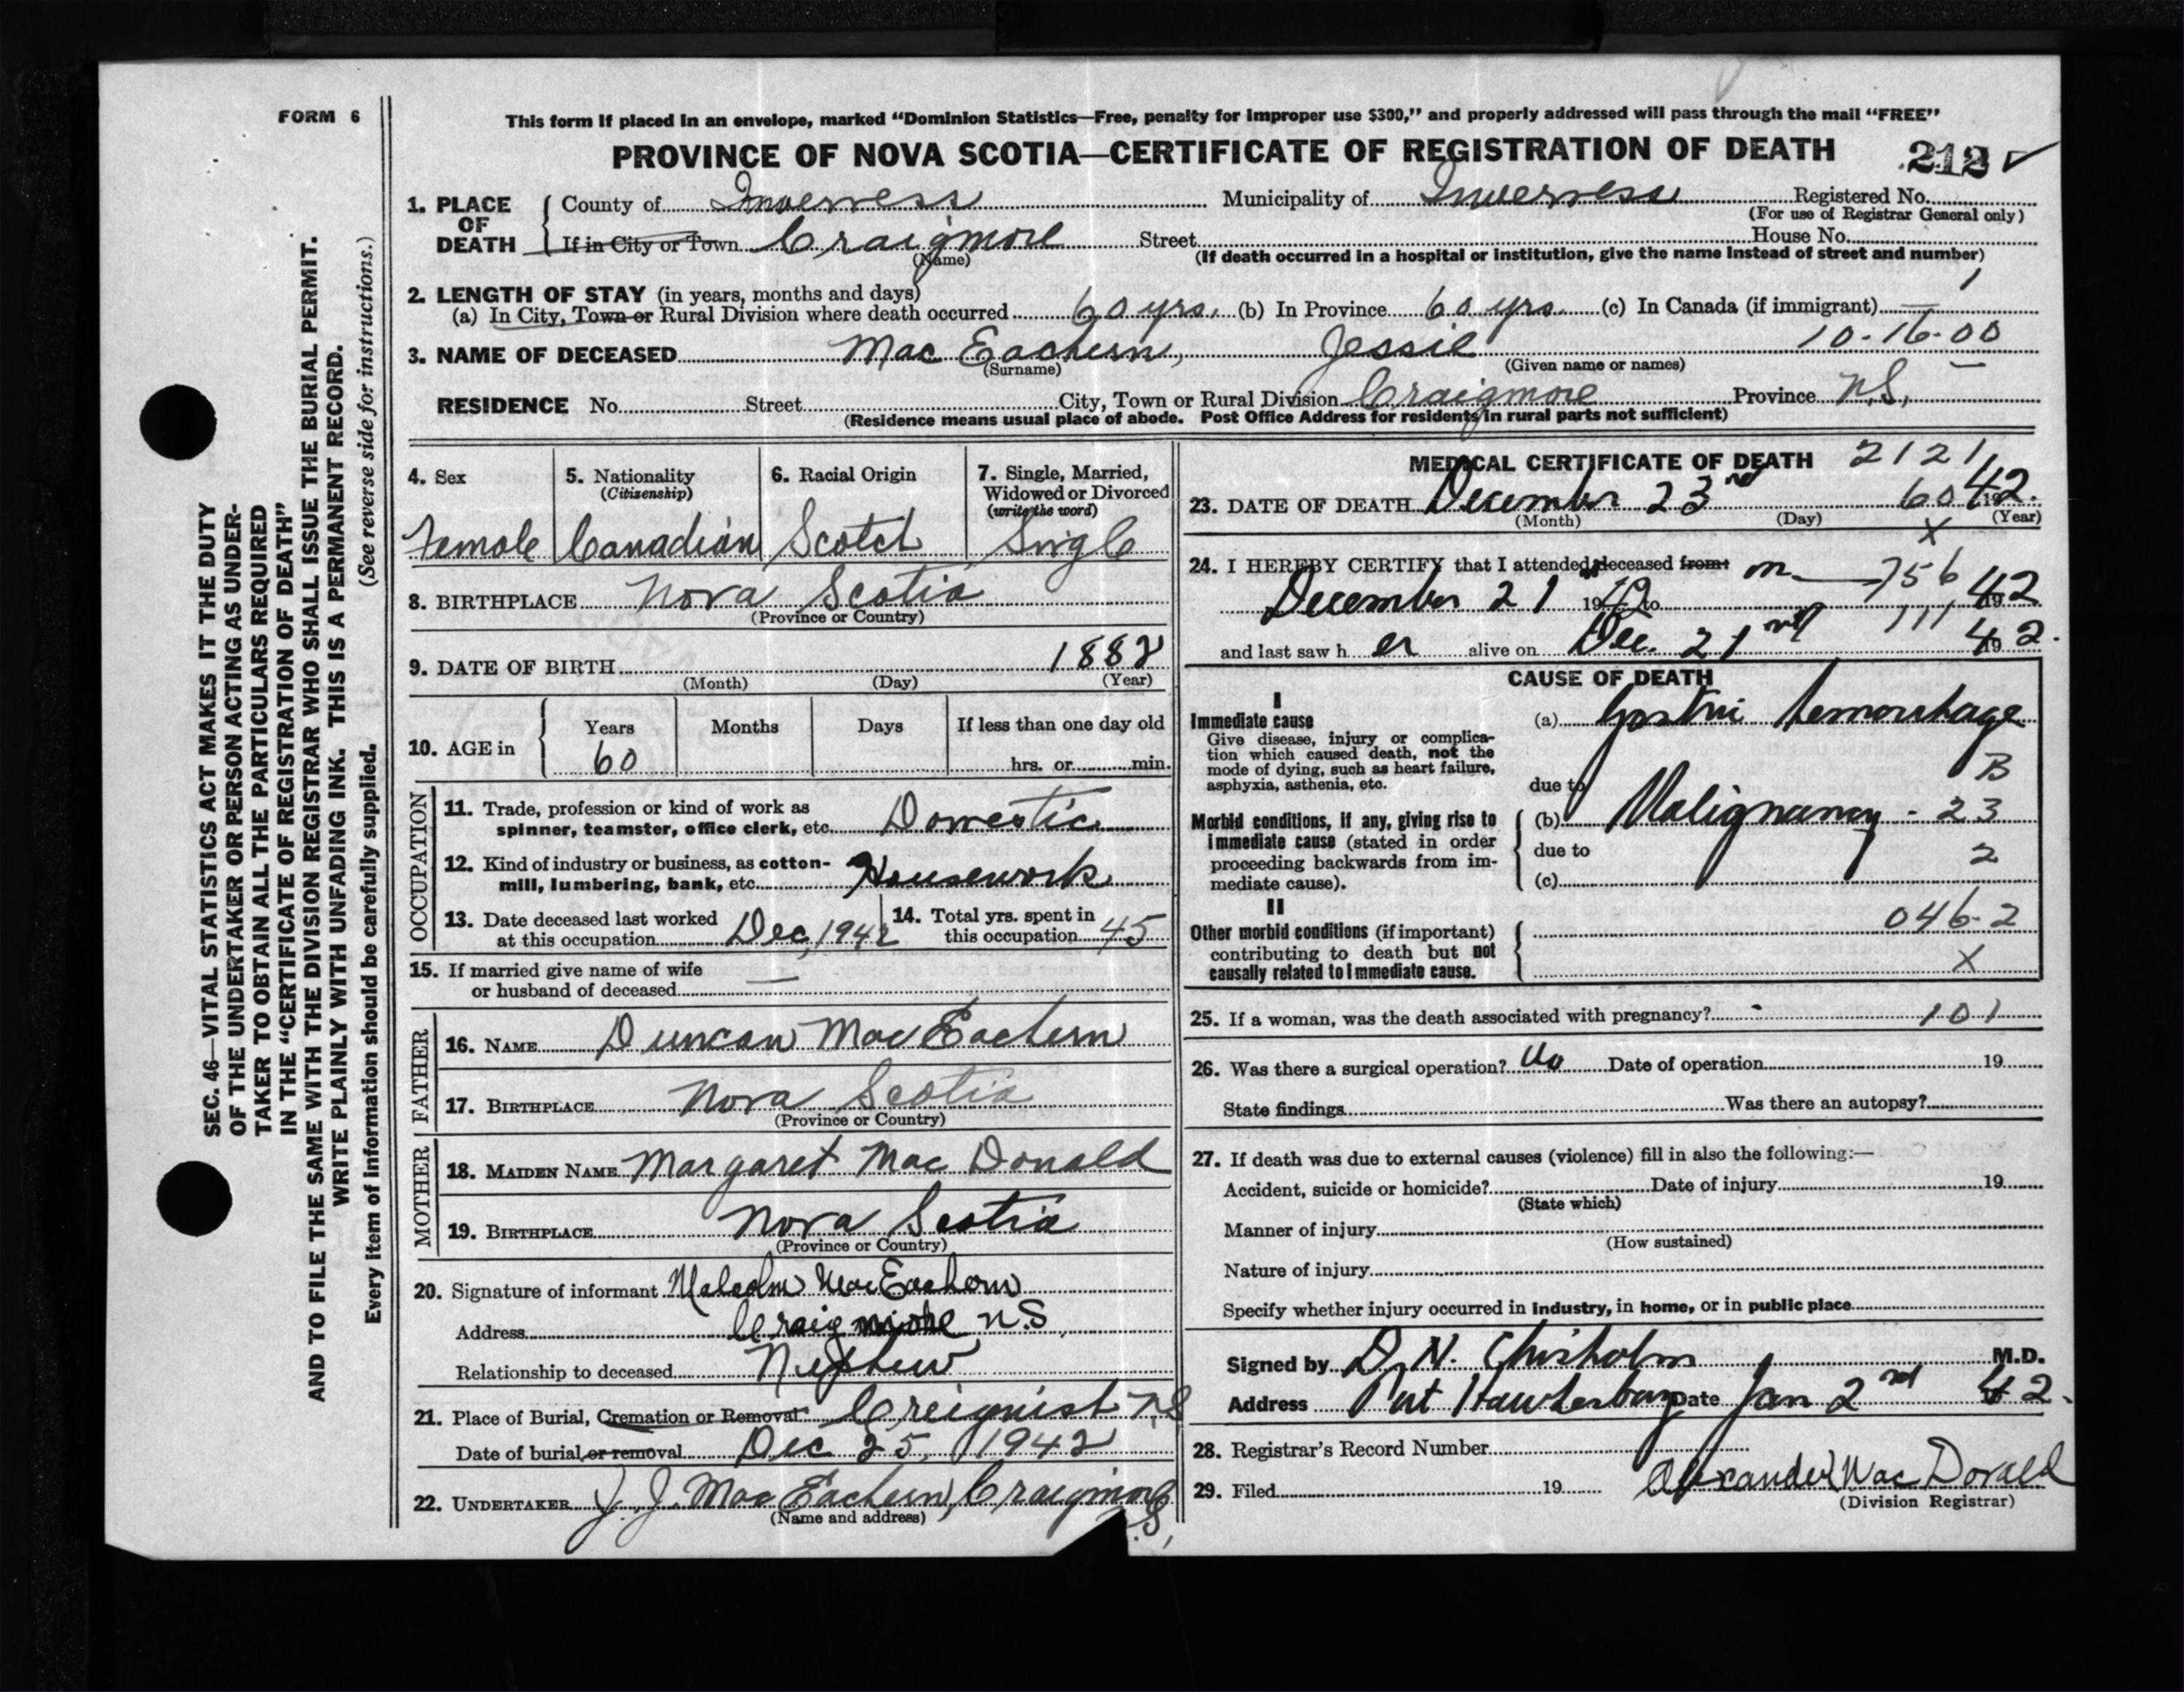 FORM 6
This form if placed in an envelope, marked "Dominion Statistics—Free, penalty for improper use $300," and properly addressed will pass through the mail "FREE"
PROVINCE OF NOVA SCOTIA—CERTIFICATE OF REGISTRATION OF DEATH 212 ✓
1. PLACE OF DEATH
County of Inverness Municipality of Inverness Registered No.
(For use of Registrar General only)
If in City or Town Craigmore Street House No.
(Name) (If death occurred in a hospital or institution, give the name instead of street and number)
2. LENGTH OF STAY (in years, months and days) 1
(a) In City, Town or Rural Division where death occurred 60 yrs. (b) In Province 60 yrs. (c) In Canada (if immigrant) —
3. NAME OF DECEASED Mac Eachern, Jessie 10-16-00
(Surname) (Given name or names)
RESIDENCE No. Street City, Town or Rural Division Craigmore Province N.S.
(Residence means usual place of abode. Post Office Address for residents in rural parts not sufficient)
4. Sex
Female
5. Nationality
(Citizenship)
Canadian
6. Racial Origin
Scotch
7. Single, Married,
Widowed or Divorced
(write the word)
Single
8. BIRTHPLACE Nova Scotia
(Province or Country)
9. DATE OF BIRTH 1882
(Month) (Day) (Year)
10. AGE in
Years Months Days If less than one day old
60 hrs. or min.
OCCUPATION
11. Trade, profession or kind of work as
spinner, teamster, office clerk, etc. Domestic
12. Kind of industry or business, as cotton-
mill, lumbering, bank, etc. Housework
13. Date deceased last worked
at this occupation Dec, 1942
14. Total yrs. spent in
this occupation 45
15. If married give name of wife
or husband of deceased —
FATHER
16. NAME Duncan MacEachern
17. BIRTHPLACE Nova Scotia
(Province or Country)
MOTHER
18. MAIDEN NAME Margaret Mac Donald
19. BIRTHPLACE Nova Scotia
(Province or Country)
20. Signature of informant Malcolm MacEachern
Address Craigmore N.S.
Relationship to deceased Nephew
21. Place of Burial, Cremation or Removal Creignish N.S
Date of burial or removal Dec 25, 1942
22. UNDERTAKER J. J. MacEachern, Craigmore
(Name and address) N.S,
MEDICAL CERTIFICATE OF DEATH 2121
23. DATE OF DEATH December 23rd 60 1942.
(Month) (Day) (Year)
X
24. I HEREBY CERTIFY that I attended deceased from on 756
December 21 1942 to 1942
and last saw her alive on Dec. 21 111 1942.
CAUSE OF DEATH
I
Immediate cause
Give disease, injury or complica-
tion which caused death, not the
mode of dying, such as heart failure,
asphyxia, asthenia, etc.
(a) Gastric hemorrhage
B
due to
Morbid conditions, if any, giving rise to
immediate cause (stated in order
proceeding backwards from im-
mediate cause).
(b) Malignancy - 23
due to 2
(c)
II
Other morbid conditions (if important)
contributing to death but not
causally related to immediate cause.
046-2
X
25. If a woman, was the death associated with pregnancy? - 101
26. Was there a surgical operation? No Date of operation 19
State findings Was there an autopsy?
27. If death was due to external causes (violence) fill in also the following:—
Accident, suicide or homicide? Date of injury 19
(State which)
Manner of injury
(How sustained)
Nature of injury
Specify whether injury occurred in industry, in home, or in public place
Signed by D. N. Chisholm M.D.
Address Port Hawkesbury Date Jan 2nd 42.
28. Registrar's Record Number
29. Filed 19 Alexander MacDonald
(Division Registrar)
SEC. 46—VITAL STATISTICS ACT MAKES IT THE DUTY
OF THE UNDERTAKER OR PERSON ACTING AS UNDER-
TAKER TO OBTAIN ALL THE PARTICULARS REQUIRED
IN THE "CERTIFICATE OF REGISTRATION OF DEATH"
AND TO FILE THE SAME WITH THE DIVISION REGISTRAR WHO SHALL ISSUE THE BURIAL PERMIT.
WRITE PLAINLY WITH UNFADING INK. THIS IS A PERMANENT RECORD.
Every item of information should be carefully supplied. (See reverse side for instructions.)